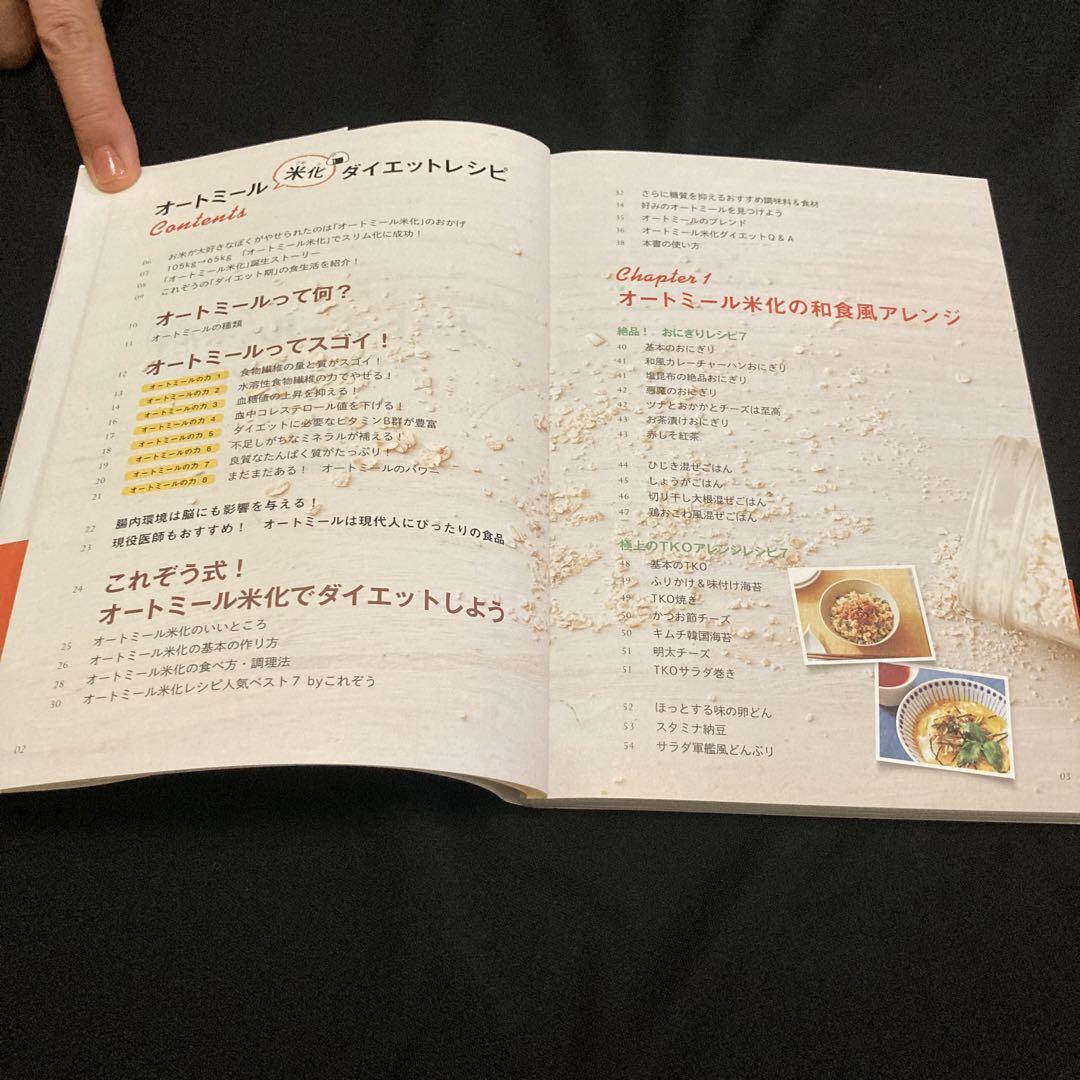 オートミール米化ダイエットレシピ
Contents
06 お米が大好きなぼくがやせられたのは「オートミール米化」のおかげ
07 105kg→65kg 「オートミール米化」でスリム化に成功！
08 「オートミール米化」誕生ストーリー
09 これぞうの「ダイエット期」の食生活を紹介！
10 オートミールって何？
11 オートミールの種類
12 オートミールってスゴイ！
13 オートミールの力 1 食物繊維の量と質がスゴイ！
14 オートミールの力 2 水溶性食物繊維の力でやせる！
16 オートミールの力 3 血糖値の上昇を抑える！
17 オートミールの力 4 血中コレステロール値を下げる！
18 オートミールの力 5 ダイエットに必要なビタミンB群が豊富
19 オートミールの力 6 不足しがちなミネラルが補える！
20 オートミールの力 7 良質なたんぱく質がたっぷり！
21 オートミールの力 8 まだまだある！ オートミールのパワー
22 腸内環境は脳にも影響を与える！
23 現役医師もおすすめ！ オートミールは現代人にぴったりの食品
24 これぞう式！
オートミール米化でダイエットしよう
25 オートミール米化のいいところ
26 オートミール米化の基本の作り方
28 オートミール米化の食べ方・調理法
30 オートミール米化レシピ人気ベスト7 byこれぞう
02
32 さらに糖質を抑えるおすすめ調味料＆食材
34 好みのオートミールを見つけよう
35 オートミールのブレンド
36 オートミール米化ダイエットQ＆A
38 本書の使い方
Chapter 1
オートミール米化の和食風アレンジ
絶品！ おにぎりレシピ7
40 基本のおにぎり
41 和風カレーチャーハンおにぎり
41 塩昆布の絶品おにぎり
42 悪魔のおにぎり
42 ツナとおかかとチーズは至高
43 お茶漬けおにぎり
43 赤しそ紅茶
44 ひじき混ぜごはん
45 しょうがごはん
46 切り干し大根混ぜごはん
47 鶏おこわ風混ぜごはん
極上のTKOアレンジレシピ7
48 基本のTKO
49 ふりかけ＆味付け海苔
49 TKO焼き
50 かつお節チーズ
50 キムチ韓国海苔
51 明太チーズ
51 TKOサラダ巻き
52 ほっとする味の卵どん
53 スタミナ納豆
54 サラダ軍艦風どんぶり
03